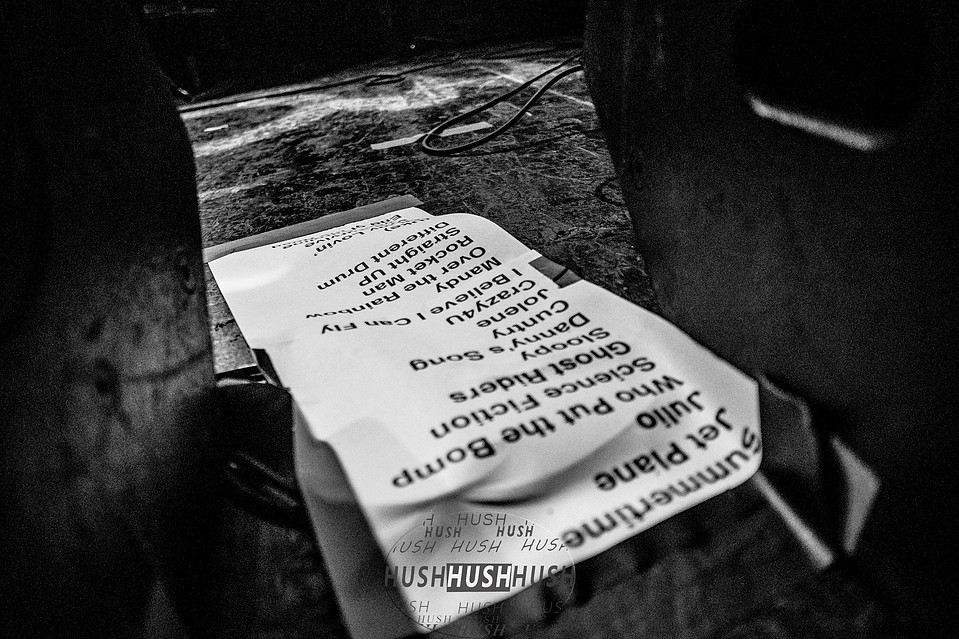 Summertime
Jet Plane
Julio
Who Put the Bomp
Science Fiction
Ghost Riders
Sloopy
Danny's Song
Cuntry
Jolene
Crazy4U
I Believe I Can Fly
Mandy
Over the Rainbow
Rocket Man
Straight UP
Different Drum
Lovin'
HUSH
HUSH HUSH
HUSH HUSH HUSH
HUSHHUSHHUSH
HUSH
HUSH